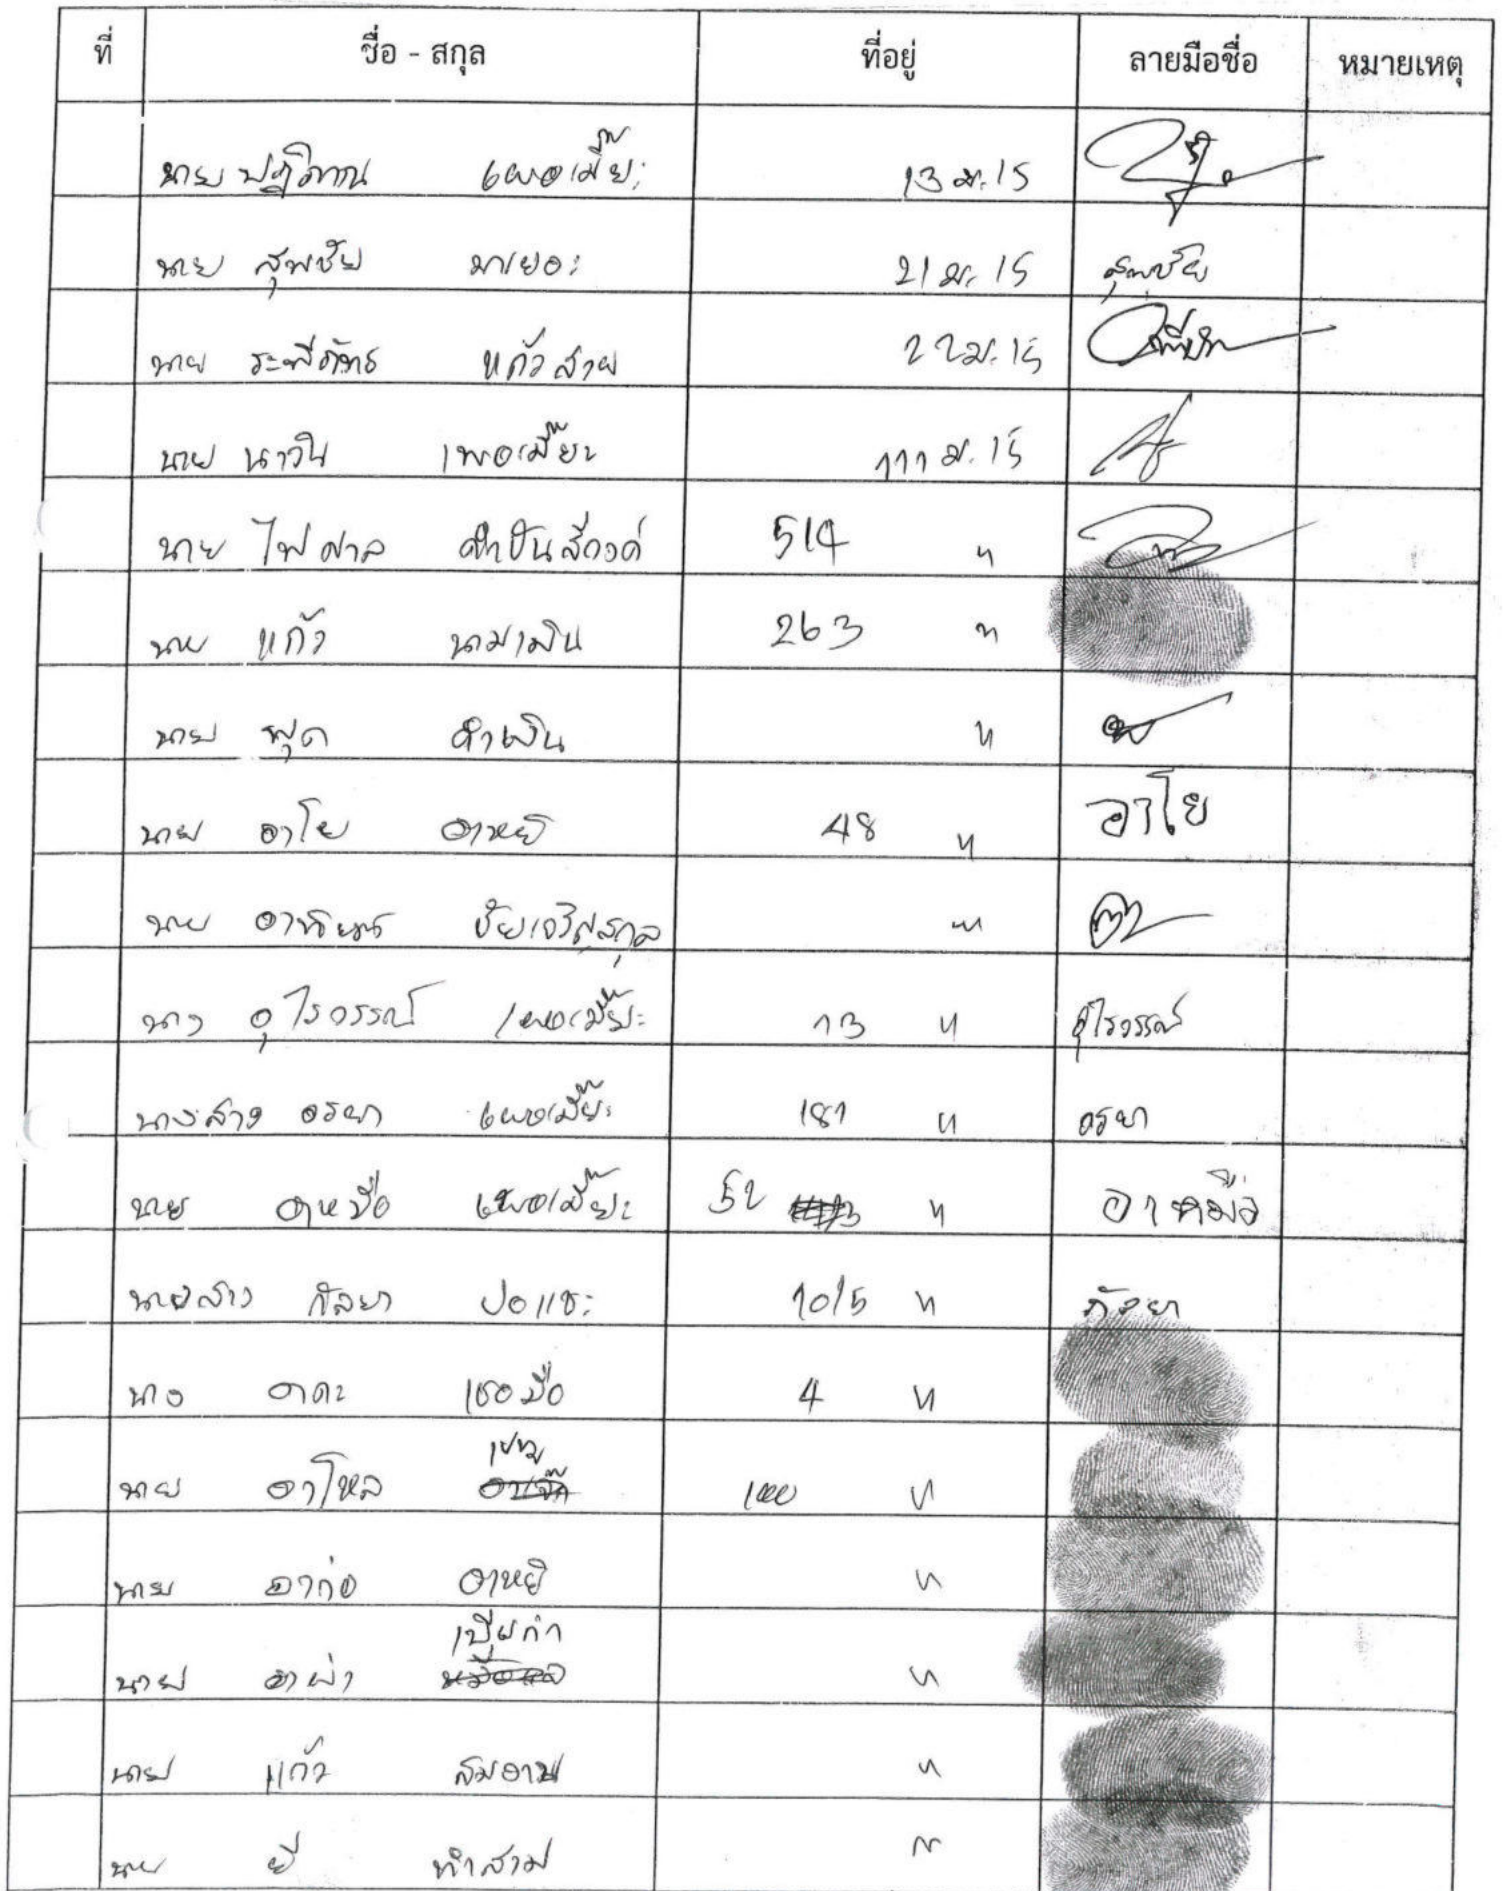 ที่ ชื่อ - สกุล ที่อยู่ ลายมือชื่อ หมายเหตุ
นาย ปฏิภาณ เผอเมี๊ยะ 13 ม.15
นาย สุพชัย มาเยอะ 21 ม.15 สุพชัย
นาย ระพีภัทร แก้วสาย 22 ม.15
นาย นาวิน เพอเมี๊ยะ 111 ม.15
นาย ไพศาล 514 "
นาย แก้ว นามเมิน 263 "
นาย พุด คำเงิน "
นาย อาโย อาหยี 48 " อาโย
นาย ชัยเจริญสกุล "
นาง อุไรวรรณ์ เผอเมี๊ยะ 13 " อุไรวรรณ์
นางสาว อรยา เผอเมี๊ยะ 181 " อรยา
นาย อาหมื่อ เผอเมี๊ยะ 52 " อาหมื่อ
นางสาว กัลยา ปอแซะ 10/5 " กัลยา
นาง อาตะ เชอมือ 4 "
นาย อาโหล 100 "
นาย อาก่อ อาหยี "
นาย อาผ่า เปียกำ "
นาย แก้ว สมอาน "
นาย ยี ทำสาม "